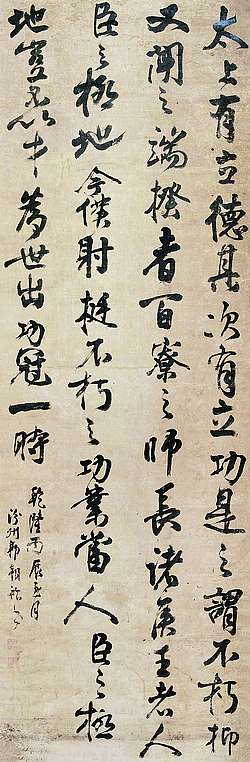 太上有立德其次有立功是之謂不朽抑
又聞之端揆者百寮之師長諸侯王者人
臣之極地今僕射挺不朽之功業當人臣之極
地豈不以才為世出功冠一時
乾隆丙辰月